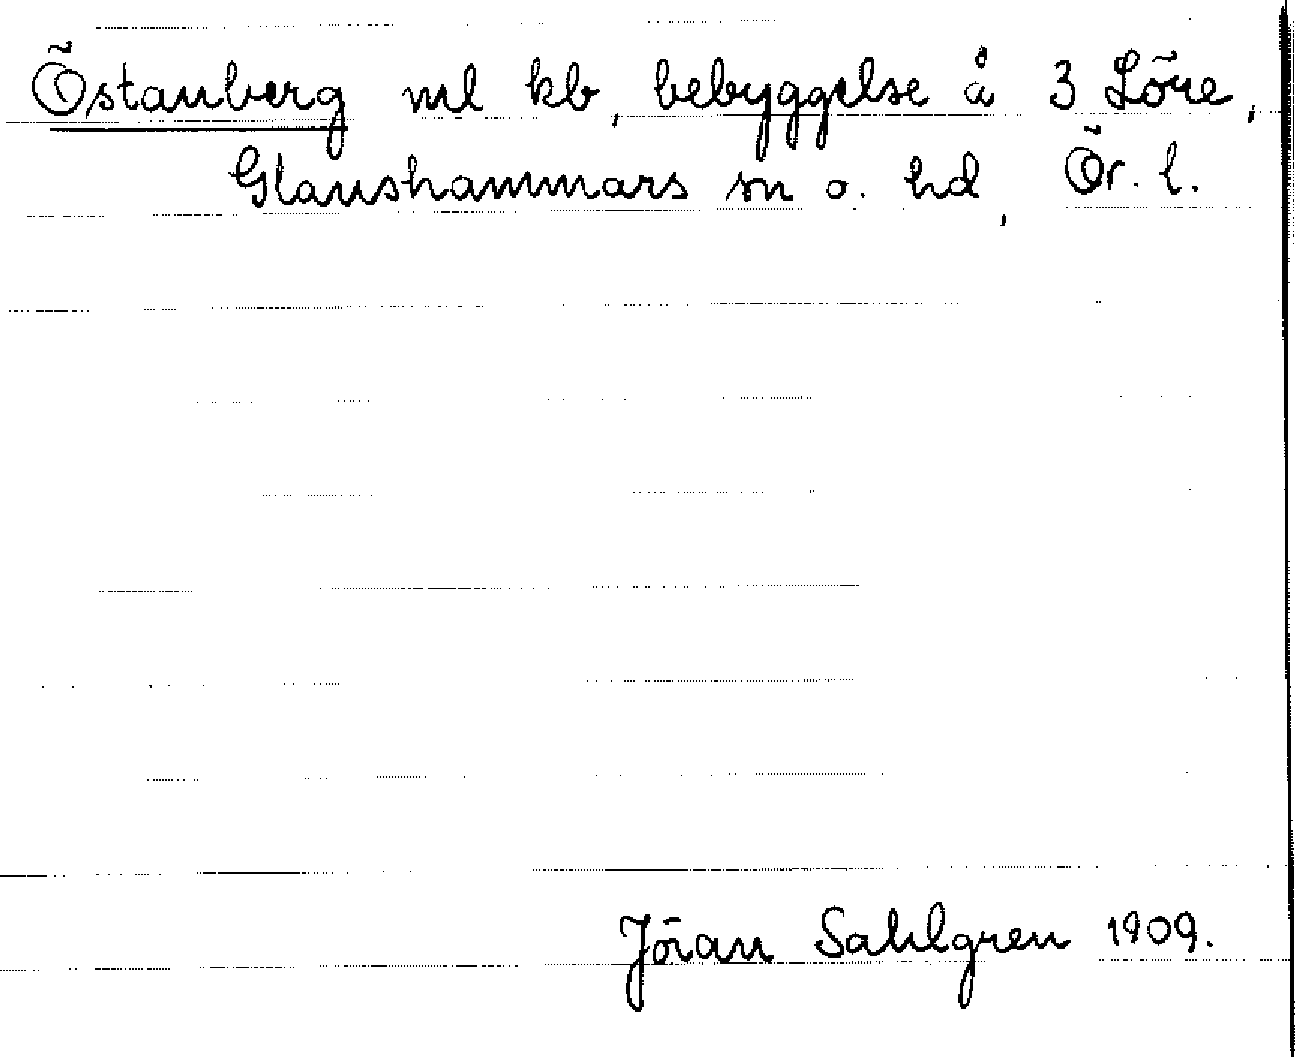 Östanberg ml kb, bebyggelse å 3 Löve,
Glanshammars sn o. hd, Ör. l.
Jöran Sahlgren 1909.